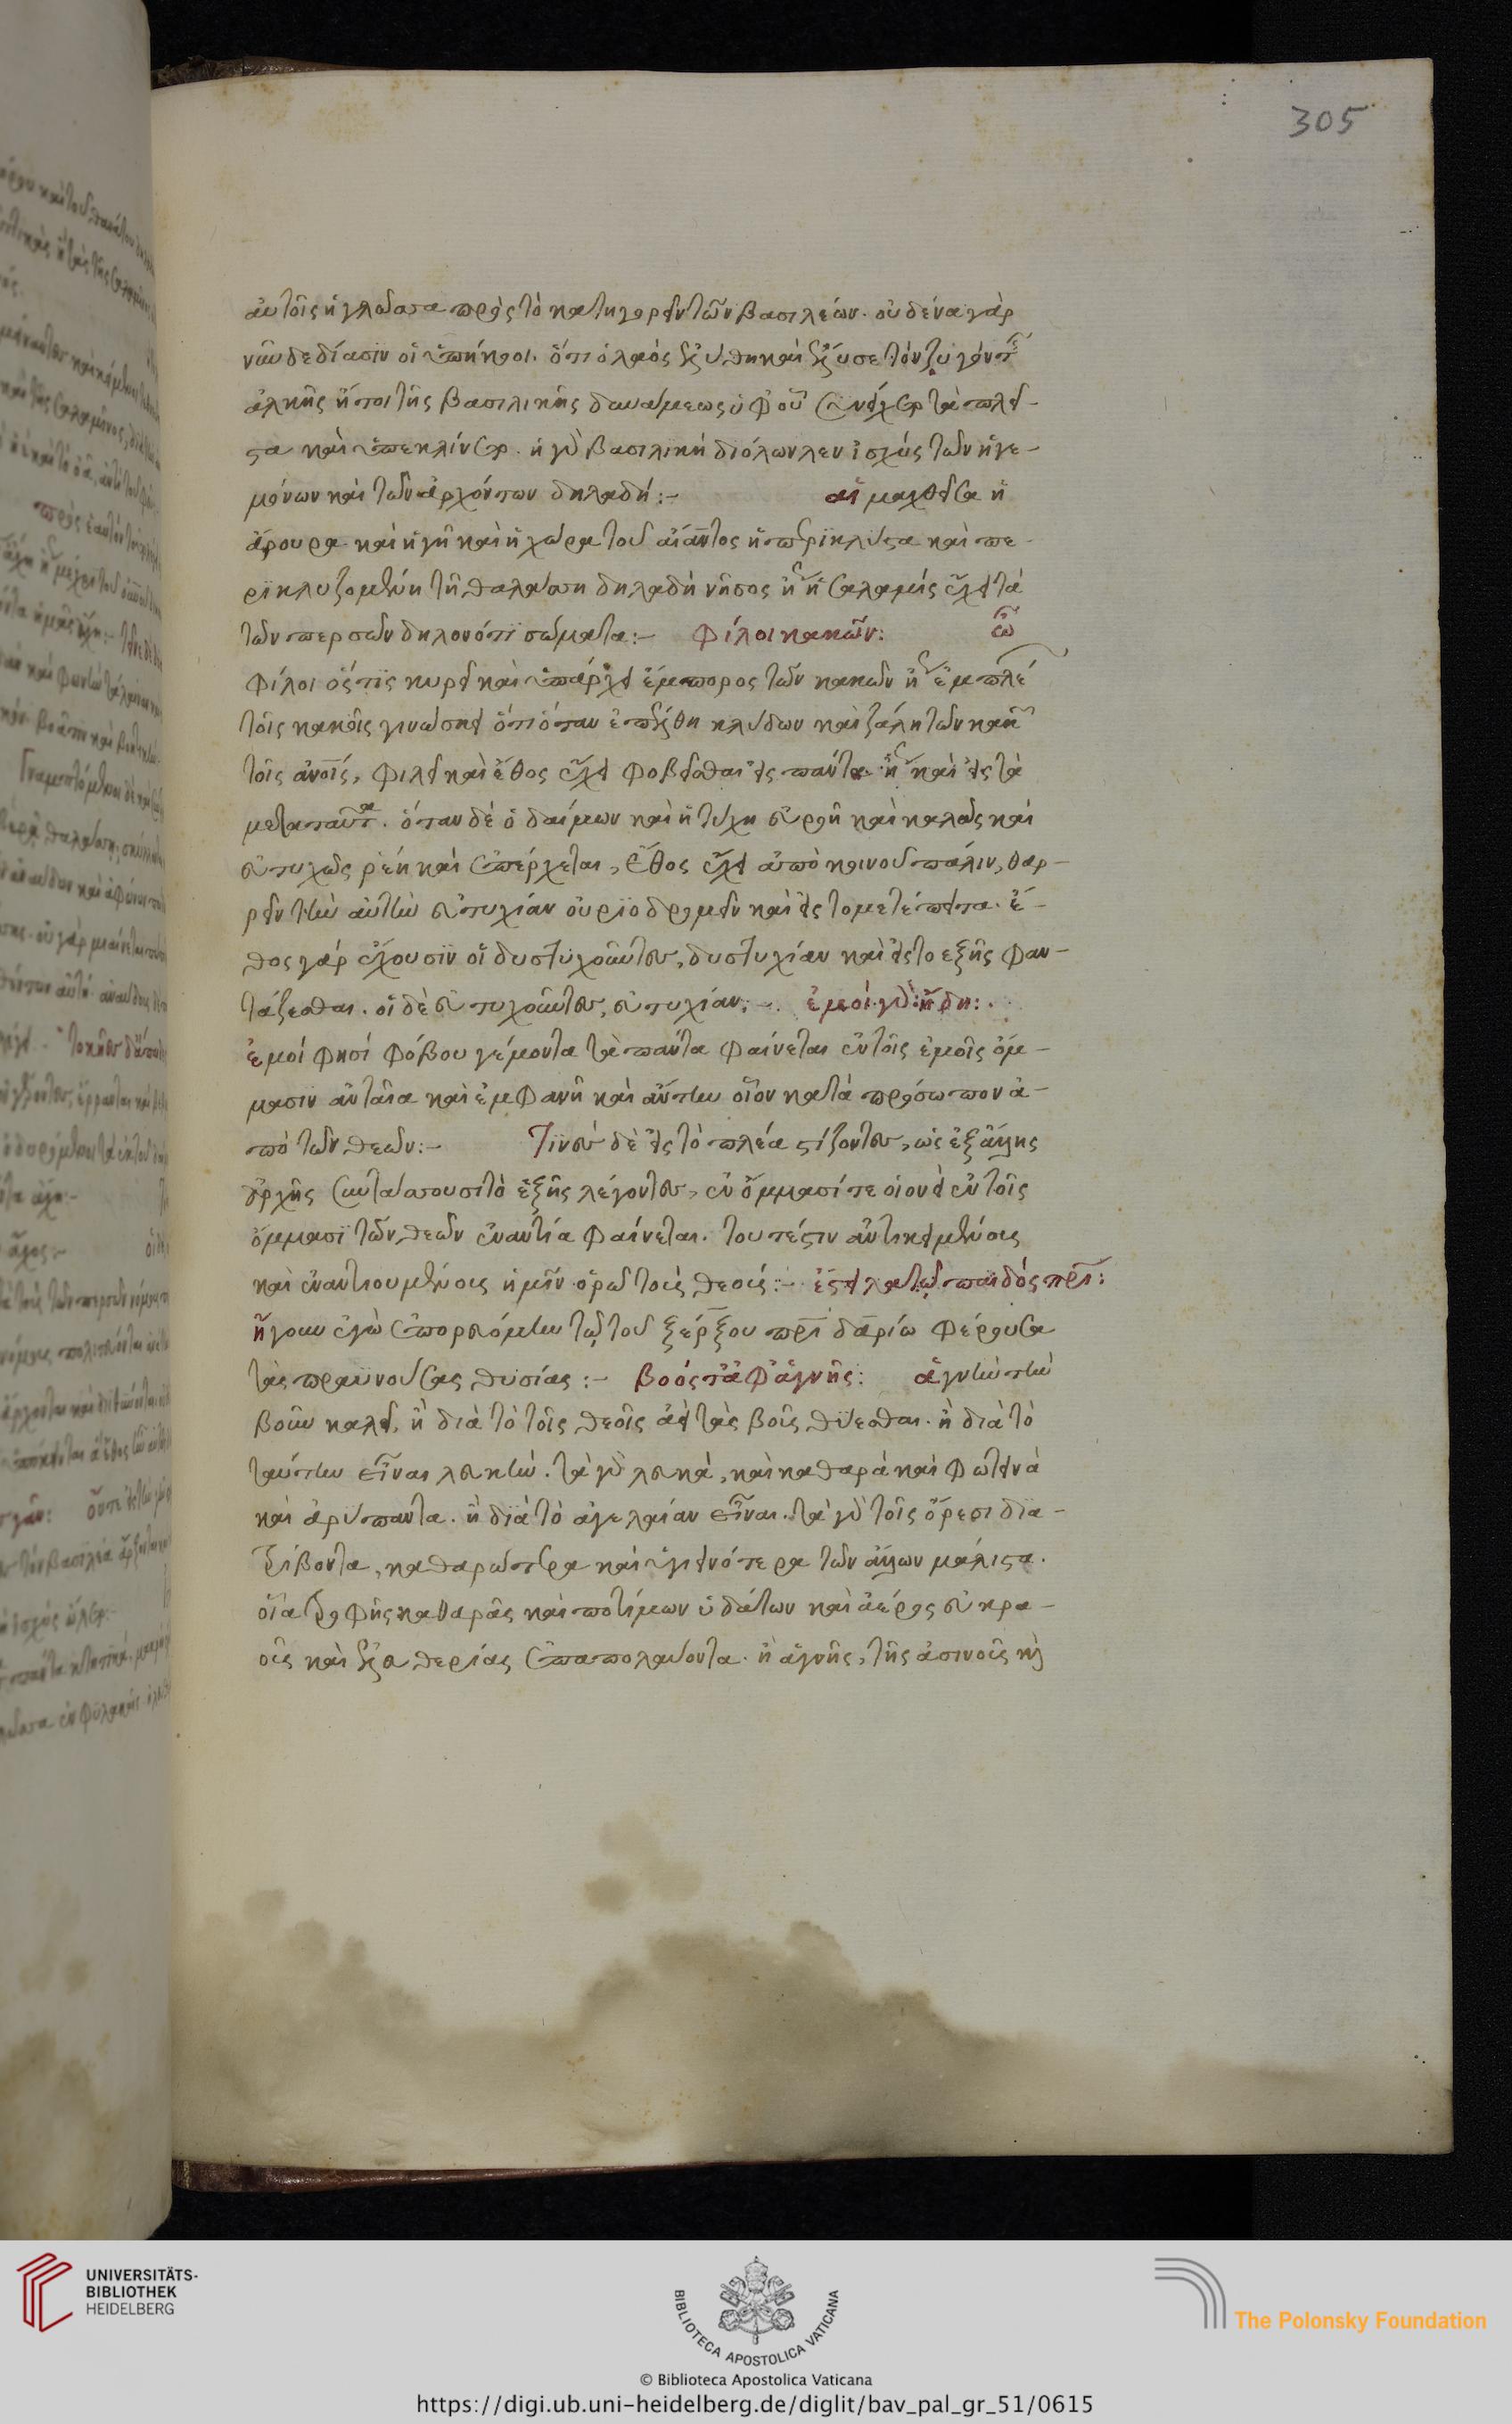 305
αὐτοῖς ἡ γλῶσσα πρὸς τὸ κατηγορεῖν τῶν βασιλέων. οὐδένα γὰρ
νῦν δεδίασιν οἱ ὑπήκοοι. ὅτι ὁ λαὸς ἐξελύθη καὶ ἐξέφυγε τὸν ζυγὸν τῆς
ἀλκῆς ἤτοι τῆς βασιλικῆς δυνάμεως ὑφ' οὗ συνείχετο τὰ πλεῖ-
στα καὶ ὑπεκλίνετο. ἡ γὰρ βασιλικὴ διόλωλεν ἰσχύς τῶν ἡγε-
μόνων καὶ τῶν ἀρχόντων δηλαδή:-
αἱμαχθεῖσα ἡ
ἄρουρα καὶ ἡ γῆ καὶ ἡ χώρα τοῦ αἴαντος ἡ περϊκλύστα καὶ πε-
ρϊκλυζομένη τῇ θαλάσσῃ δηλαδὴ νῆσος ἤγουν ἡ σαλαμίς ἔχει τὰ
τῶν περσῶν δηλονότϊ σώματα:- φίλοι κακῶν: ὦ
φίλοι ὅστϊς κυρεῖ καὶ ὑπάρχει ἔμπορος τῶν κακῶν ἤγουν ἐμπλέ
τοῖς κακοῖς γινώσκει ὅτι ὅταν ἐπέλθη κλύδων καὶ ζάλη τῶν κακῶν
τοῖς ἀνοις, φιλεῖ καὶ ἔθος ἔχει φοβεῖσθαι εἰς πάντα ἤγουν καὶ εἰς τὰ
μεταταῦτα. ὅταν δὲ ὁ δαίμων καὶ ἡ τύχη εὐροῆ καὶ καλῶς καὶ
εὐτυχῶς ῥέη καὶ ἐπέρχεται, ἔθος ἔχει ἀπὸ κοινοῦ πάλιν, θαρ-
ρεῖν τὴν αὐτὴν εὐτυχίαν οὐρϊοδρομεῖν καὶ εἰς το μετέπειτα. ἔ-
θος γάρ ἔχουσϊν οἱ δυστϋχοῦντες, δυστυχίαν καὶ εἰς το εξῆς φαν-
τάζεσθαι. οἱ δὲ εὐτυχοῦντες, εὐτυχίαν:- ἐμοί γὰρ ἤδη:
ἐμοί φησί φόβου γέμοντα τὰ πάντα φαίνεται ἐν τοῖς ἐμοῖς ὄμ-
μασιν ἀνταῖα καὶ ἐμφανῆ καὶ ἄντην οἷον κατὰ πρόσωπον ἀ-
πὸ τῶν θεῶν:- Τϊνὲς δὲ εἰς τὸ πλέα στίζοντες, ὡς ἐξ ἄλλης
ἀρχῆς συντάττουσι τὸ ἑξῆς λέγοντες, ἐν ὄμμασί τε οἱονεὶ ἐν τοῖς
ὄμμασϊ τῶν θεῶν ἐναντία φαίνεται. τουτέστιν ἀντικειμένους
καὶ ἐναντιουμένους ἡμῖν ὁρῶ τοὺς θεούς:- ἔστειλα τῷ παιδός πρὶ:
ἤγουν ἐγὼ ἐπορευόμην τῷ τοῦ ξέρξου πρὶ δαρίω φέρουσα
τὰς πραϋνούσας θυσίας:- βοός τ' ἀφ' ἁγνῆς: ἁγνὴν τὴν
βοῦν καλεῖ, ἢ διὰ τὸ τοῖς θεοῖς ἀεὶ τὰς βοῦς θύεσθαι. ἢ διὰ τὸ
ταύτην εἶναι λευκήν. τὰ γὰρ λευκά, καὶ καθαρά καὶ φωτεινὰ
καὶ ἀρύπαντα. ἢ διὰ τὸ ἀγελαίαν εἶναι. τὰ γὰρ τοῖς ὄρεσι δϊα-
τρίβοντα, καθαρώτερα καὶ ὑγιεινότερα τῶν ἄλλων μάλιστα.
οἷα τροφῆς καθαρᾶς καὶ ποτίμων ὑδάτων καὶ ἀέρος εὐκρα-
οῦς καὶ ἐλευθερίας ἐπαπολαύοντα. ἢ ἁγνῆς, τῆς ἀσινοῦς κὶ
UNIVERSITÄTS-
BIBLIOTHEK
HEIDELBERG
BIBLIOTECA APOSTOLICA VATICANA
The Polonsky Foundation
© Biblioteca Apostolica Vaticana
https://digi.ub.uni-heidelberg.de/diglit/bav_pal_gr_51/0615